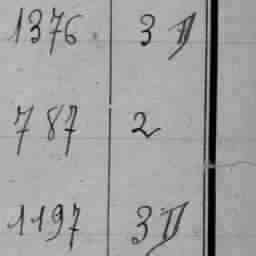 1376 3 D
787 2
1197 3 D